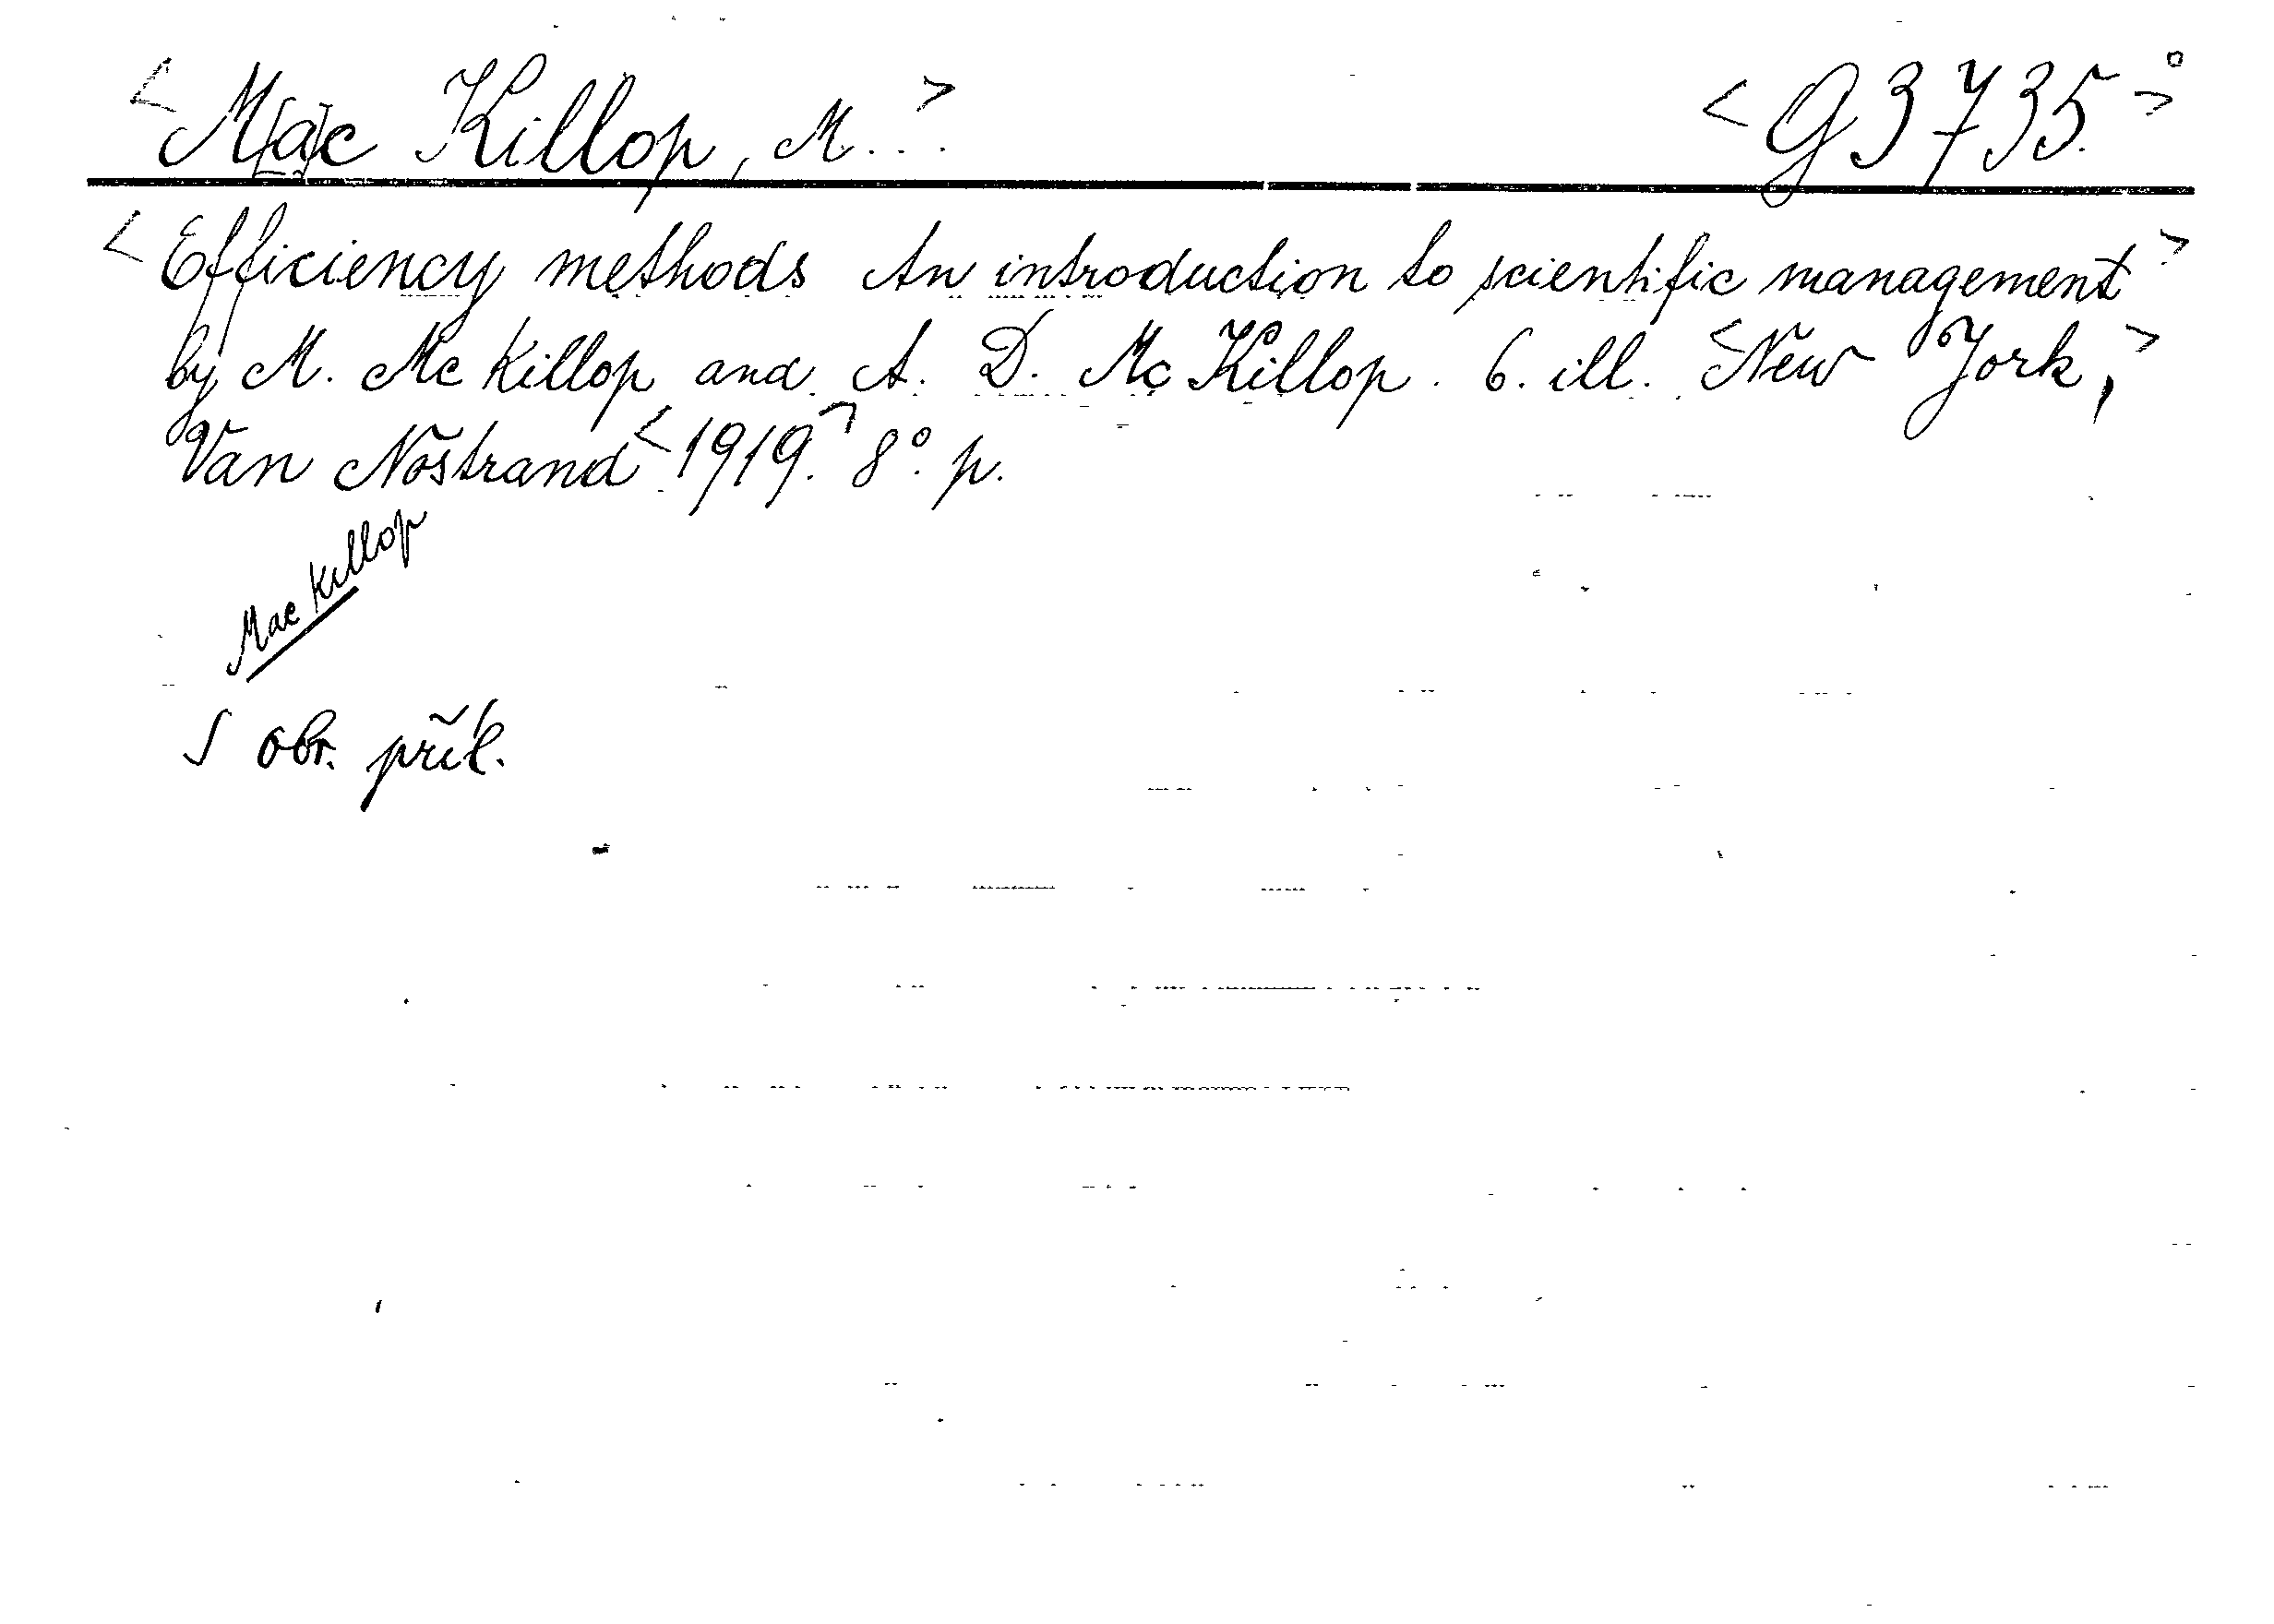 <M[a]c Killop, M...> <G 3735.°>
<Efficiency methods An introduction to scientific management>
by M. Mc Killop and A. D. Mc Killop. 6. ill. <New York,>
Van Nostrand <1919.> 8°. p.
Mac Killop
S obr. příl.